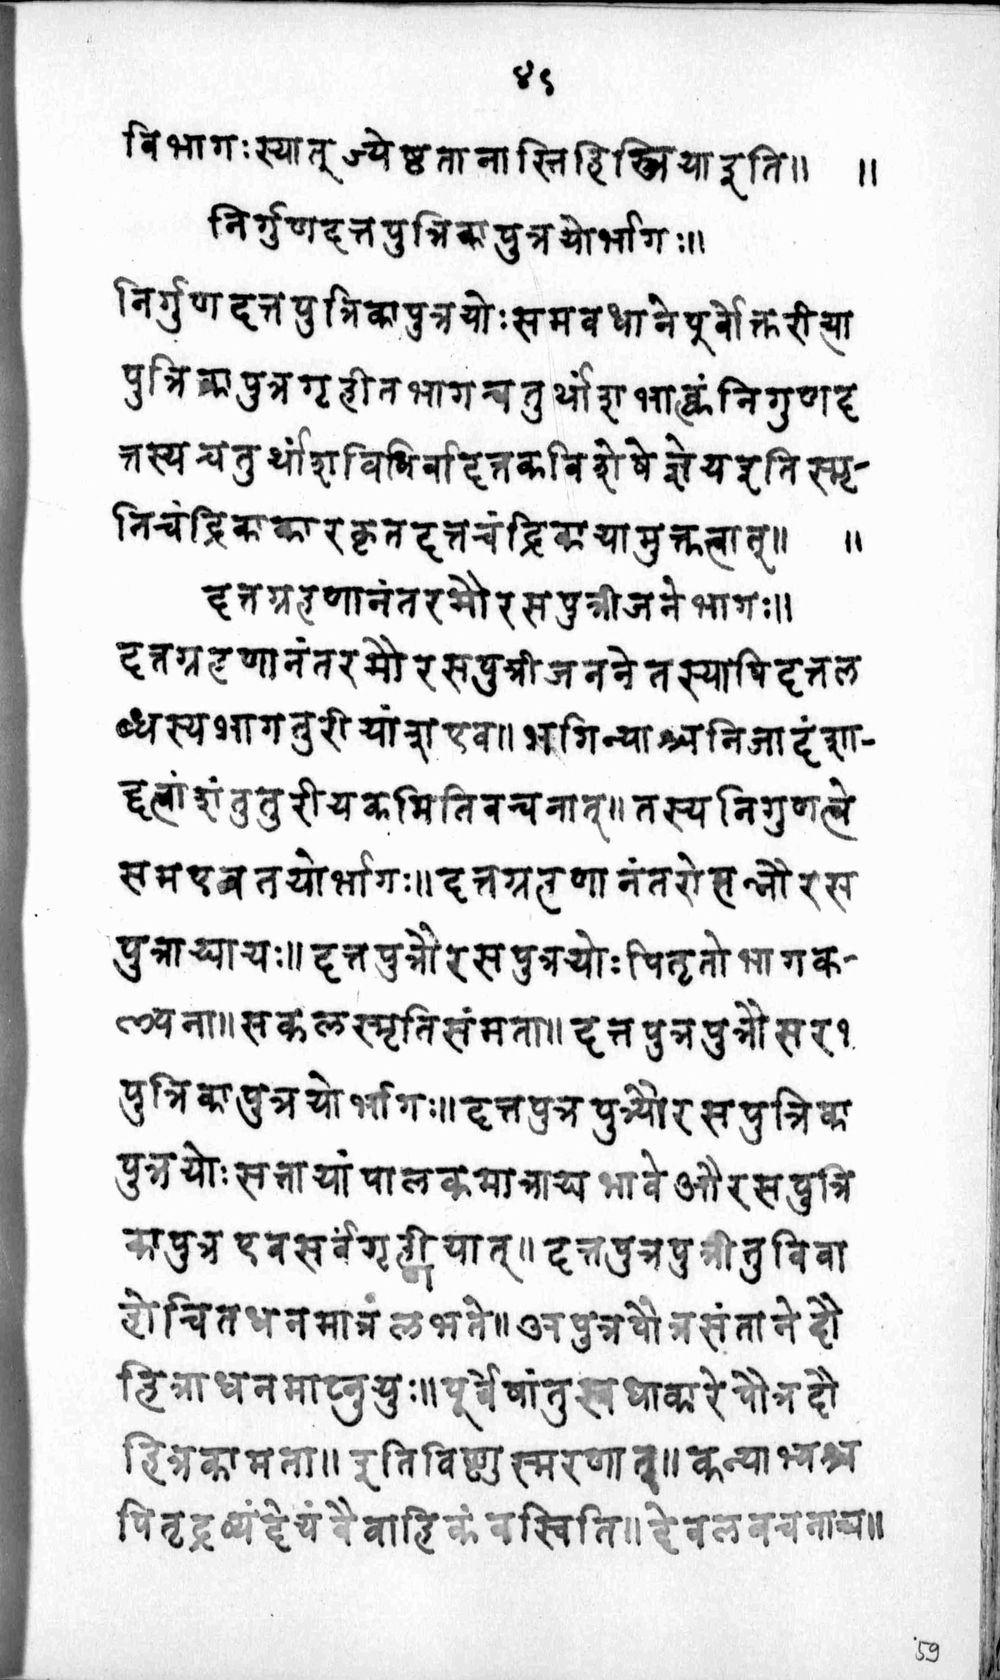 ४९
विभागःस्यात्ज्येष्ठतानास्तिहिस्त्रियाइति॥ ॥
निर्गुणदत्तपुत्रिकापुत्रयोर्भागः॥
निर्गुणदत्तपुत्रिकापुत्रयोःसमवधानेपूर्वोक्तरीत्या
पुत्रिकापुत्रगृहीतभागचतुर्थांशभाक्त्वंनिगुणद
त्तस्यचतुर्थांशविधिर्वादत्तकविशेषेज्ञेयइतिस्मृ-
तिचंद्रिकाकारकृतदत्तचंद्रिकायामुक्तत्वात्॥ ॥
दत्तग्रहणानंतरमौरसपुत्रीजनेभागः॥
दत्तग्रहणानंतरमौरसपुत्रीजननेतस्यापिदत्तल
ब्धस्यभागतुरीयांशएव॥भगिन्याश्चनिजादंशा-
द्दत्वांशंतुतुरीयकमितिवचनात्॥तस्यनिगुणत्वे
समएवतयोर्भागः॥दत्तग्रहणानंतरोत्पन्नौरस
पुत्राच्चायः॥दत्तपुत्रौरसपुत्रयोःपितृतोभागक-
ल्पना॥सकलस्मृतिसंमता॥दत्तपुत्रपुत्रौसर१
पुत्रिकापुत्रयोर्भागः॥दत्तपुत्रपुत्र्यौरसपुत्रिका
पुत्रयोःसत्तायांपालकमात्राद्यभावेऔरसपुत्रि
कापुत्रएवसर्वंगृह्णीयात्॥दत्तपुत्रपुत्रीतुविवा
होचितधनमात्रंलभते॥अपुत्रपौत्रसंतानेदौ
हित्राधनमाप्नुयुः॥पूर्वेषांतुस्वधाकारेपौत्रदौ
हित्रकामता॥इतिविष्णुस्मरणात्॥कन्याभ्यश्च
पितृद्रव्यंदेयंवैवाहिकंवस्विति॥देवलवचनाच्च॥
59